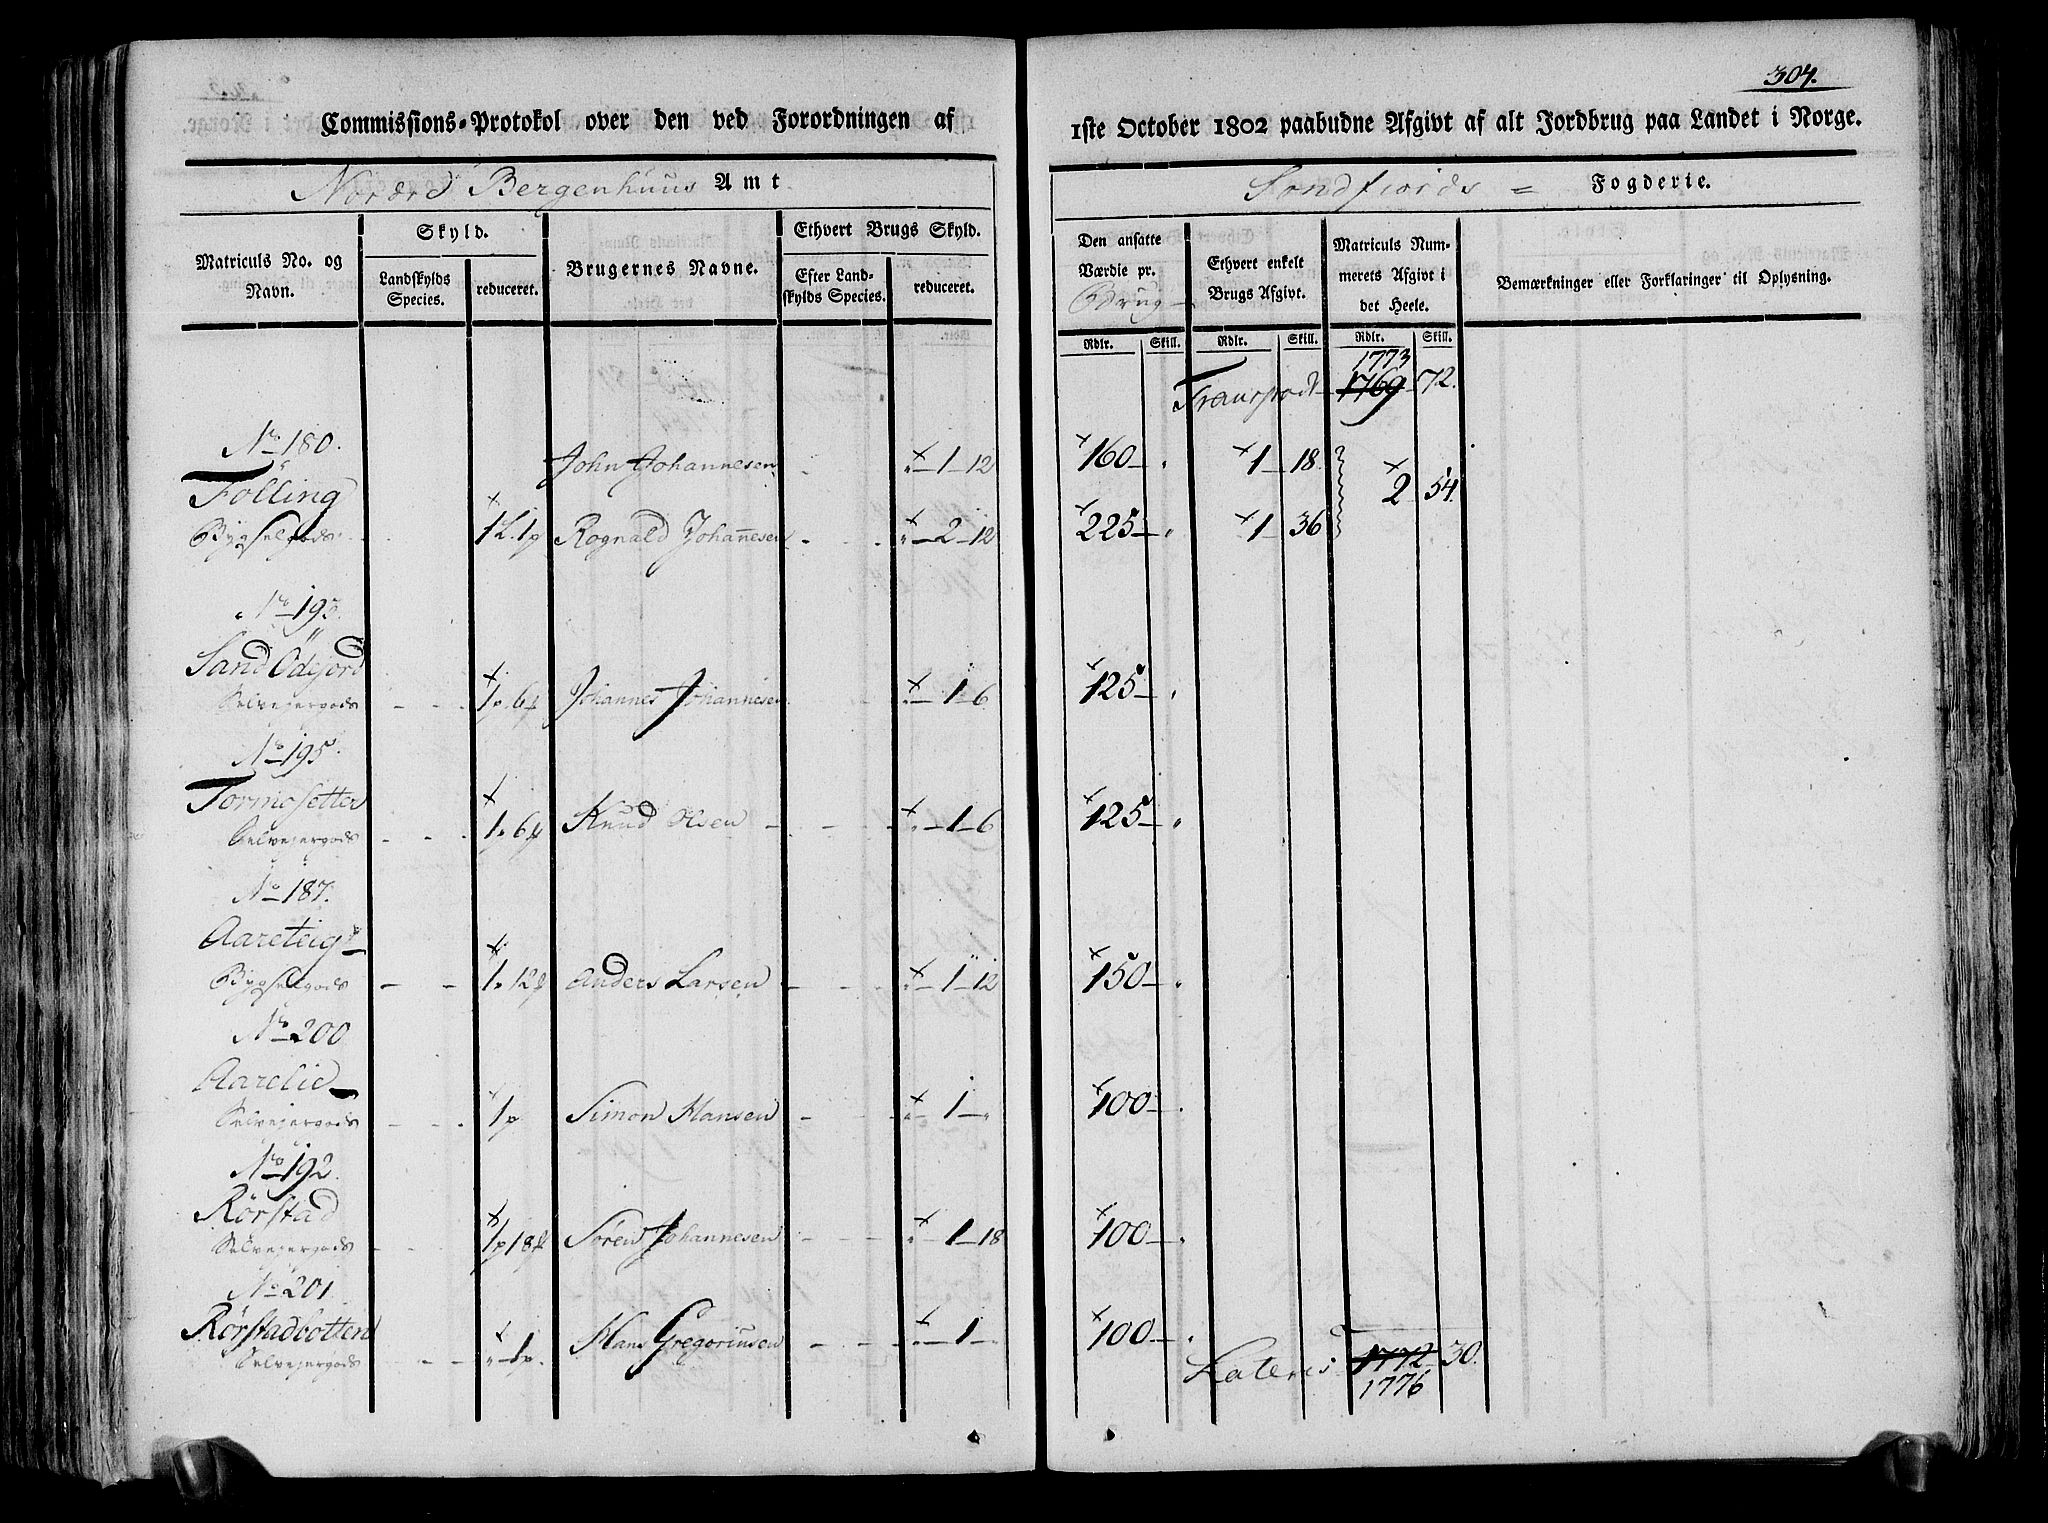 304.
Commissions-Protokol over den ved Forordningen af 1ste October 1802 paabudne Afgivt af alt Jordbrug paa Landet i Norge.
Nordre Bergenhuus Amt
Sondfiords = Fogderie.
Matriculs No. og Navn.
Skyld.
Landskylds Species.
reduceret.
Brugernes Navne.
Ethvert Brugs Skyld.
Efter Landskylds Species.
reduceret.
Den ansatte Værdie pr. Brug
Ethvert enkelt Brugs Afgivt.
Matriculs Nummerets Afgivt i det Heele.
Bemærkninger eller Forklaringer til Oplysning.
Rdlr. Skill. Rdlr. Skill. Rdlr. Skill.
1773
Transport 1769 72.
No 180.
John Johannesen - × „ - 1 - 12 × 160 - „ × 1 - 18
Fölling × 2 54.
Bygselgods × 1 L. 1 p Rognald Johannesen - × „ - 2 - 12 × 225 - „ × 1 - 36
No 193.
Sand Ödejord
Selvejergods - - × 1 p. 6 Johannes Johannesen × „ - 1 - 6 × 125 - „
No 195.
Tormosetter
Selvejergods - - × 1 p 6 Knud Olsen - - × „ - 1 - 6 × 125 - „
No 187.
Aareteig
Bygselgods - - × 1 p 12 Anders Larsen - - × „ - 1 - 12 × 150 - „
No 200
Aarelie
Selvejergods - - × 1 p Simon Hansen - - × „ - 1 - „ × 100 - „
No 192.
Rörstad
Selvejergods - - × 1 p 18 Sören Johannesen - - × „ - 1 - 18 × 100 - „
No 201
Rørstadbotten
Selvejergods - - × „ - 1 p. Hans Gregoriusen - - × „ - 1 - „ × 100 - „
Lateris 1772 30.
1776